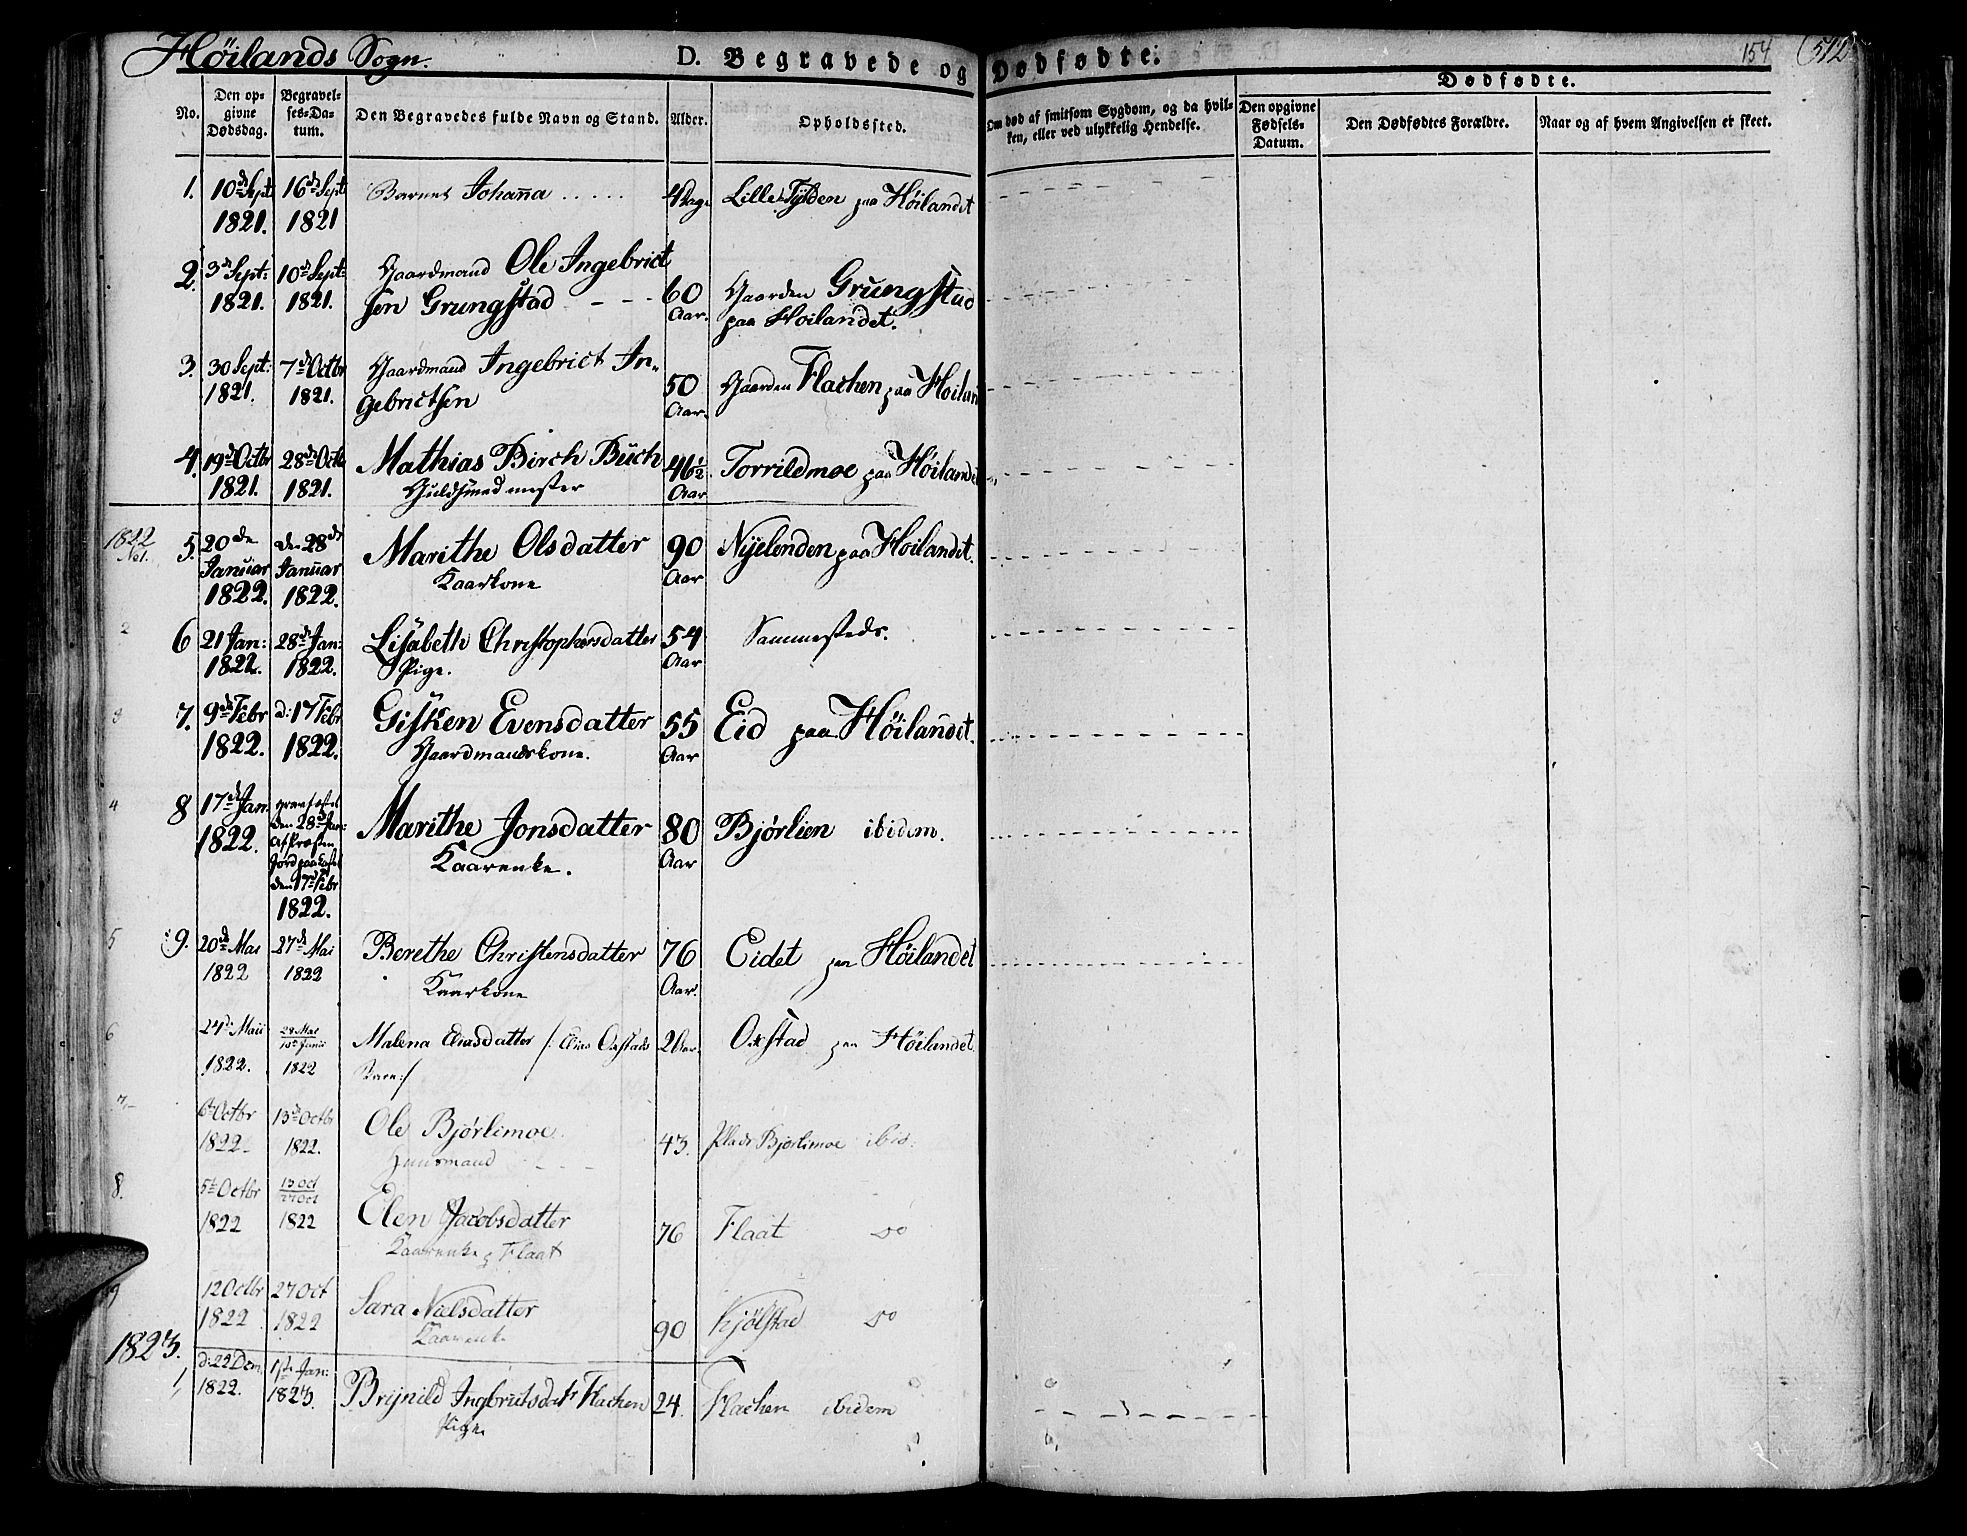 Höilands Sogn. D. Begravede og Dødfødte: 154 (512
Dødfødte.
No. Den opgivne Dødsdag. Begravelses-Datum. Den Begravedes fulde Navn og Stand. Alder. Opholdssted. Om død af smitsom Sygdom, og da hvilken, eller ved ulykkelig Hendelse. Den opgivne Fødsels-Datum. Den Dødfødtes Forældre. Naar og af hvem Angivelsen er skeet.
1. 10de Sept 16de Sept Barnet Johanna . . . . . 4 Dage Lille Tylden paa Höilandet
1821. 1821
2. 3de Sept: 10de Sept: Gaardmand Ole Ingebrict
1821. 1821. sen Grungstad - - - 60 Aar. Gaarden Grungstad
paa Höilandet.
3. 30 Sept: 7de Octbr Gaardmand Ingebrict In-
1821. 1821. gebrictsen 50 Aar. Gaarden Flachen paa Höiland
4. 19de Octbr 28de Octb Mathias Birch Buch 46½ Aar Torrildmoe paa Höilandet
1821. 1821. Guldsmed mester
1822 No1. 5. 20de den 28de Marithe Olsdatter 90 Aar Nyelenden paa Höilandet.
Januar Januar Kaarkone
1822. 1822.
2 6 21 Jan: 28de Jan: Lisabeth Christophersdatter 54 Aar Sammesteds.
1822. 1822. Pige.
3 7. 9de Febr d: 17 Febr Gisken Evensdatter 55 Aar Eid paa Höilandet.
1822. 1822. Gaardmandskone.
4 8 17de Jan. Marithe Jonsdatter 80 Aar Bjørlien ibidem.
1822. den 28de Jan: Kaarenke.
af Præsten
Jord paa kastet
den 17de Febr
1822.
5 9. 20de Mai 27de Mai Berethe Christensdatter 76 Aar. Eidet paa Höilandet
1822 1822 Kaarkone
6 24d: Maii 28 Mai Malena Eliasdatter /: Elias Oxstads 2 Aar. Oxstad paa Höilandet
10de Junii
1822. 1822 Barn:/
7 6te Octbr 13de Octbr Ole Bjørlimoe
1822 1822. Huusmand - - - 43. Plads Bjørlimoe ibid:
8. 5te Octbr 13 Oct Elen Jacobsdatter
27 Oct
1822 1822 Kaarenke p Flaat 76 Flaat do
9 12 Octbr 27 Oct Sara Nielsdatter
1822 1822 Kaarenke 90 Kjölstad do
1823.
1, d: 22 Dcm 1ste Jan: Brynild Ingbrictsdatr Flachen 24. Flachen ibidem
1822. 1823. Pige